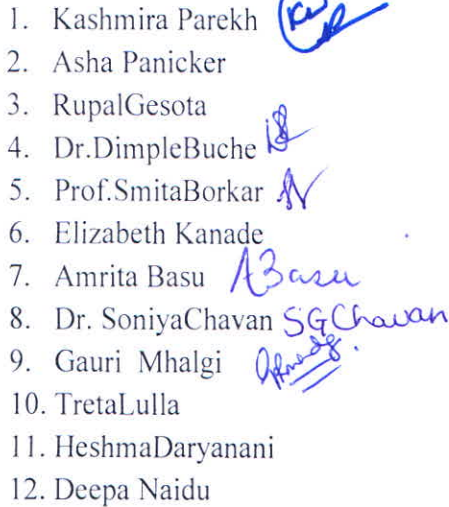 1. Kashmira Parekh
2. Asha Panicker
3. RupalGesota
4. Dr.DimpleBuche
5. Prof.SmitaBorkar
6. Elizabeth Kanade
7. Amrita Basu ABasu
8. Dr. SoniyaChavan SGChavan
9. Gauri Mhalgi
10. TretaLulla
11. HeshmaDaryanani
12. Deepa Naidu